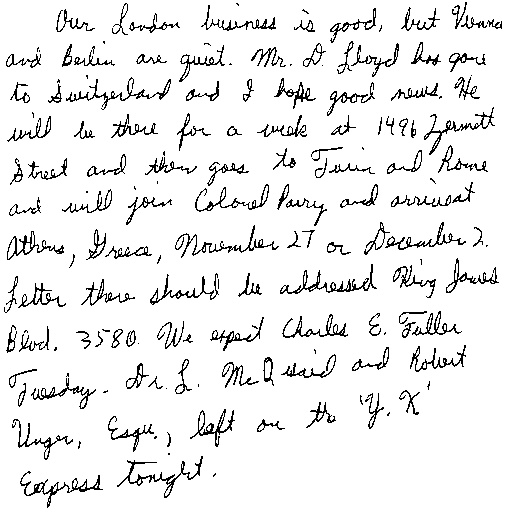 Our London business is good, but Vienna
and Berlin are quiet. Mr. D. Lloyd has gone
to Switzerland and I hope good news. He
will be there for a week at 1496 Zermott
Street and then goes to Turin and Rome
and will join Colonel Parry and arrive at
Athens, Greece, November 27 or December 2.
Letter there should be addressed King James
Blvd. 3580. We expect Charles E. Fuller
Tuesday. Dr. L. McQuaid and Robert
Unger, Esqu., left on the 'Y. X'
Express tonight.